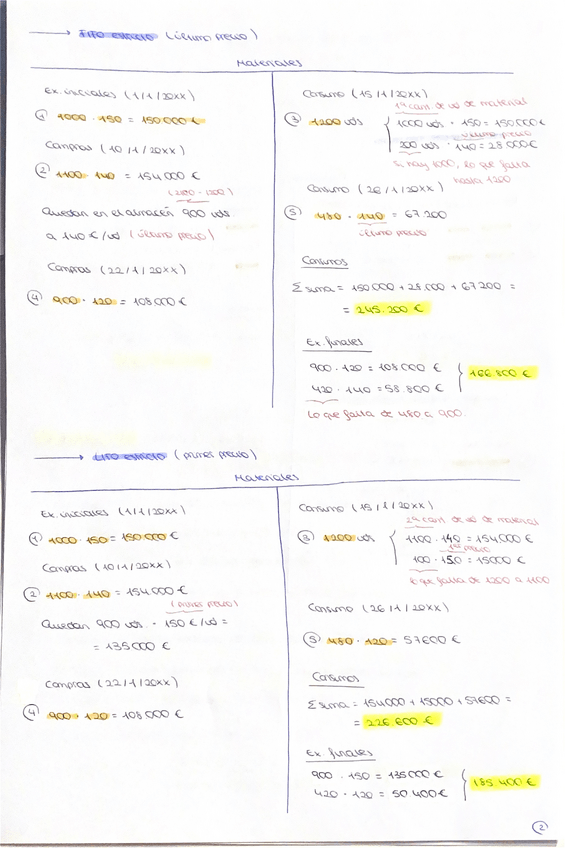 → FIFO estricto (último precio)
Materiales
Ex. iniciales (1/1/20XX)
① 1000 · 150 = 150000 €
Compras (10/1/20XX)
② 1100 · 140 = 154000 €
(2100 - 1200)
Quedan en el almacén 900 uds
a 140 €/ud (último precio)
Compras (22/1/20XX)
④ 900 · 120 = 108000 €
Consumo (15/1/20XX)
1ª cant. de ud de material
③ 1200 uds
1000 uds · 150 = 150000 €
último precio
200 uds · 140 = 28000 €
Si hay 1000, lo que falta
hasta 1200
Consumo (26/1/20XX)
⑤ 480 · 140 = 67.200
último precio
Consumos
Σ suma = 150000 + 28000 + 67200 =
= 245.200 €
Ex. finales
900 · 120 = 108000 €
420 · 140 = 58.800 €
166.800 €
Lo que falta de 480 a 900.
→ LIFO estricto (primer precio)
Materiales
Ex. iniciales (1/1/20XX)
① 1000 · 150 = 150.000 €
Compras (10/1/20XX)
② 1100 · 140 = 154000 €
(primer precio)
Quedan 900 uds · 150 €/ud =
= 135000 €
Compras (22/1/20XX)
④ 900 · 120 = 108000 €
Consumo (15/1/20XX)
2ª cant. de ud de material
③ 1200 uds
1100 · 140 = 154000 €
1er precio
100 · 150 = 15000 €
lo que falta de 1200 a 1100
Consumo (26/1/20XX)
⑤ 480 · 120 = 57600 €
Consumos
Σ suma = 154000 + 15000 + 57600 =
= 226.600 €
Ex. finales
900 · 150 = 135000 €
420 · 120 = 50400 €
185.400 €
②